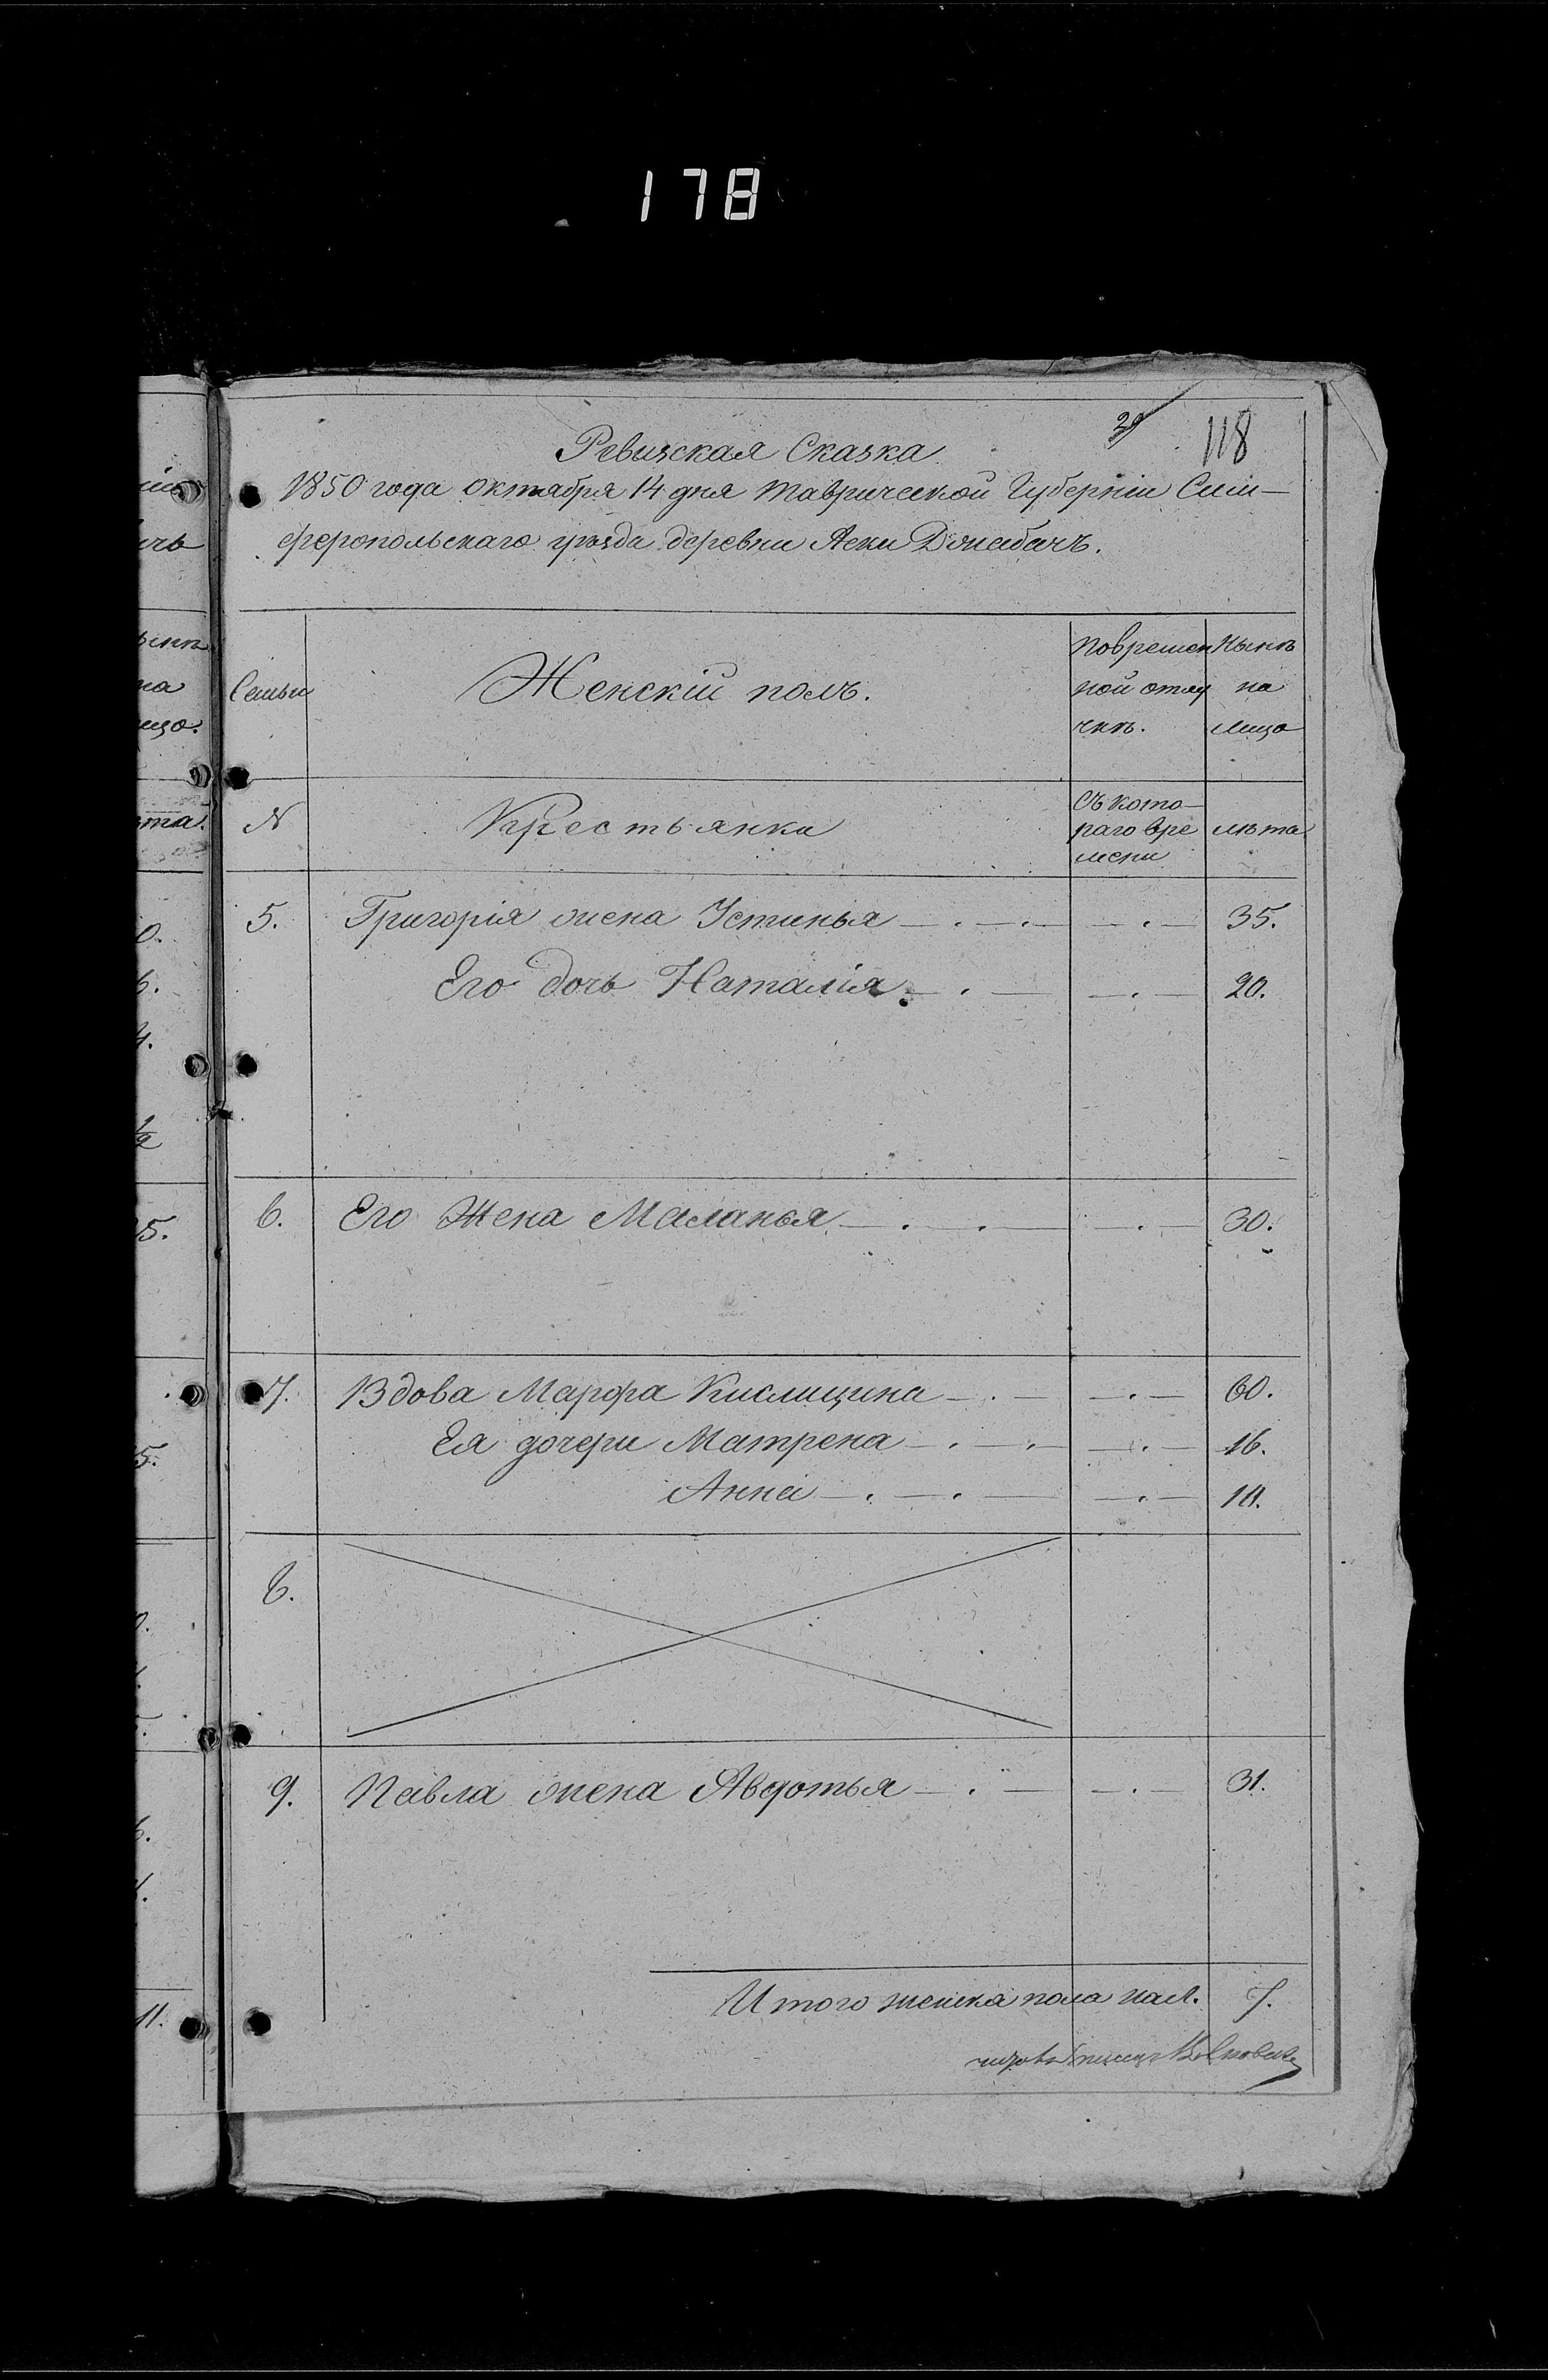 178
29
118
Ревизская Сказка
1850 года октября 14 дня Таврической Губерніи Сим-
феропольскаго уѣзда деревни Аски Джабачъ.
Семьи
Женскій полъ.
Повремен
ной отлу
чкѣ.
Нынѣ
на
лицо
N
Крестьянки
Съ кото-
раго вре
мени
лѣта
5. Григорія жена Устинья 35.
Его дочь Наталія 20.
6. Его Жена Маланья 30.
7. Вдова Марфа Кислицина 60.
Ея дочери Матрена 16.
Анна
8.
9. Павла жена Авдотья 31.
Итого женска пола нал. 7.